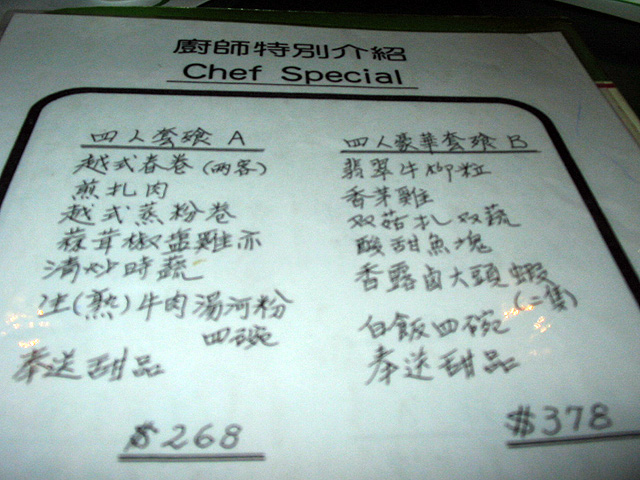 廚師特別介紹
Chef Special
四人套飧 A
越式春卷(兩客)
煎扎肉
越式蒸粉卷
蒜茸椒盐雞亦
清炒時蔬
生(熟)牛肉湯河粉
四碗
奉送甜品
$268
四人豪華套飧 B
翡翠牛柳粒
香茅雞
双菇扒双蔬
酸甜魚塊
香露卤大頭蝦
(二隻)
白飯四碗
奉送甜品
$378